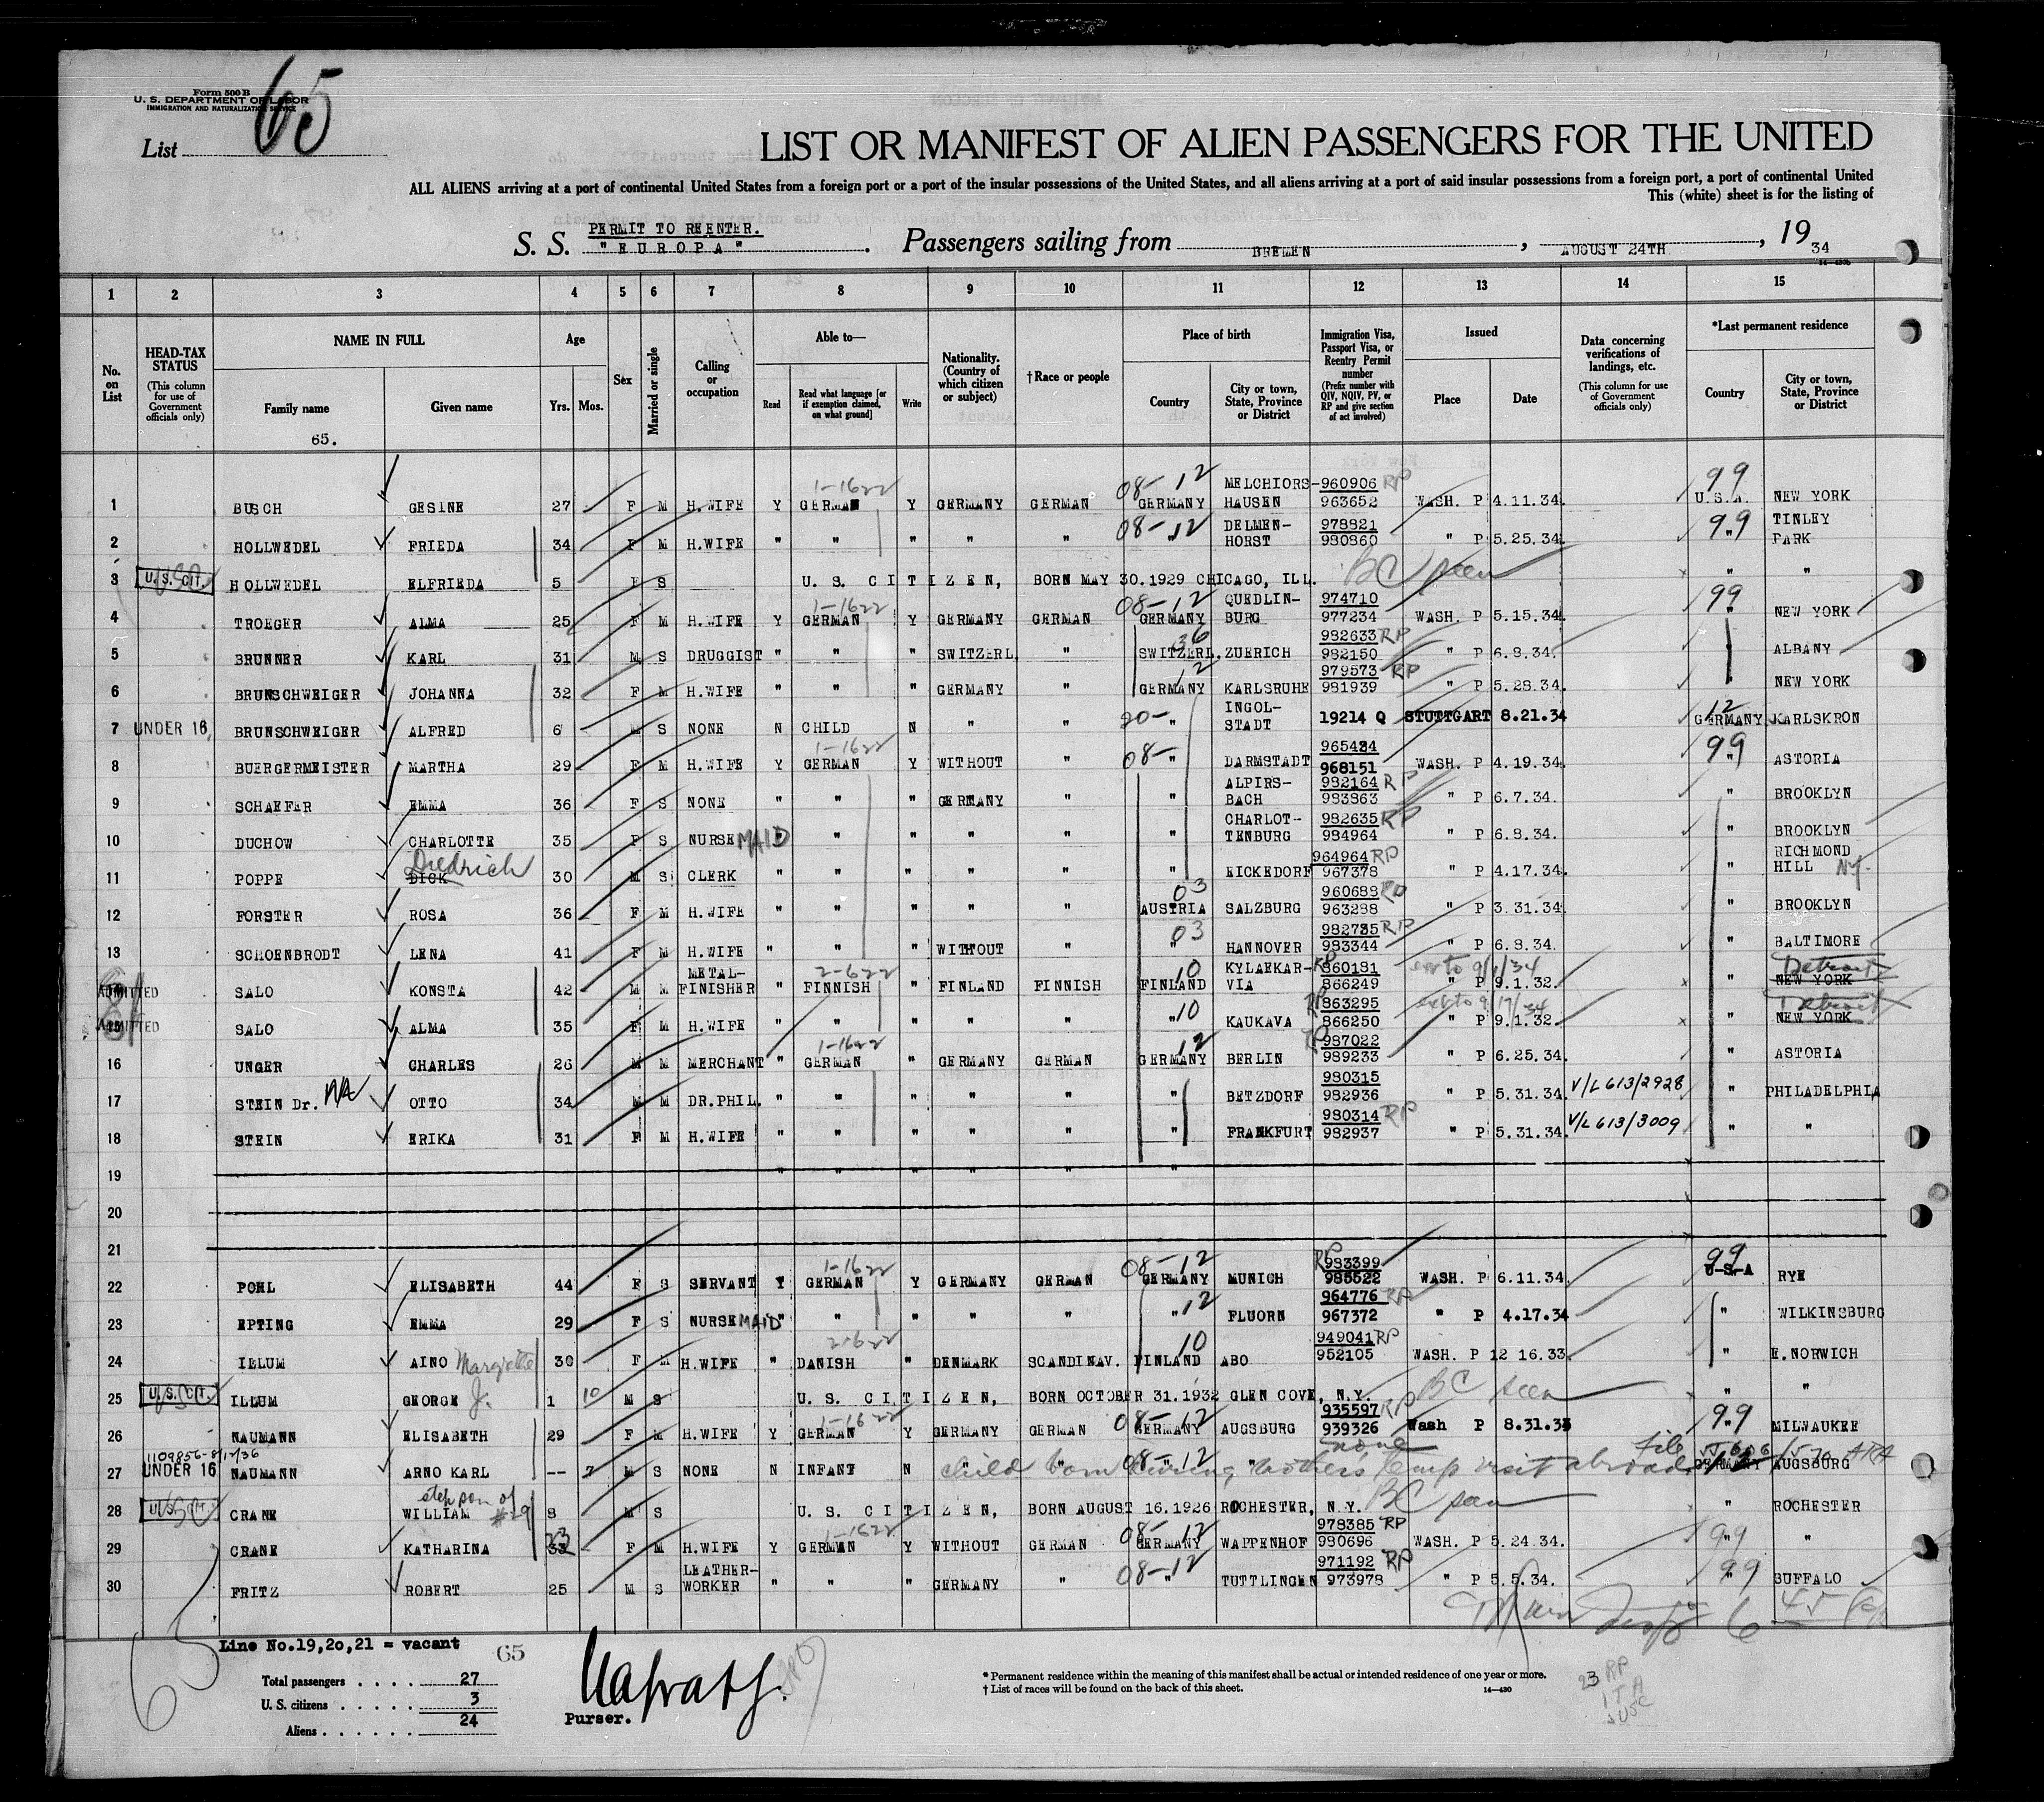 Form 500 B
U. S. DEPARTMENT OF LABOR
IMMIGRATION AND NATURALIZATION SERVICE
List 65
LIST OR MANIFEST OF ALIEN PASSENGERS FOR THE UNITED
ALL ALIENS arriving at a port of continental United States from a foreign port or a port of the insular possessions of the United States, and all aliens arriving at a port of said insular possessions from a foreign port, a port of continental United
This (white) sheet is for the listing of
PERMIT TO REENTER.
S. S. "EUROPA" . Passengers sailing from BREMEN , AUGUST 24TH , 19 34
1 2 3 4 5 6 7 8 9 10 11 12 13 14 15
No. on List
HEAD-TAX STATUS (This column for use of Government officials only)
NAME IN FULL
Family name Given name
65.
Age
Yrs. Mos.
Sex
Married or single
Calling or occupation
Able to—
Read Read what language [or if exemption claimed, on what ground] Write
Nationality. (Country of which citizen or subject)
†Race or people
Place of birth
Country City or town, State, Province or District
Immigration Visa, Passport Visa, or Reentry Permit number (Prefix number with QIV, NQIV, PV, or RP and give section of act involved)
Issued
Place Date
Data concerning verifications of landings, etc. (This column for use of Government officials only)
*Last permanent residence
Country City or town, State, Province or District
1 BUSCH GESINE 27 F M H.WIFE Y GERMAN 1-1622 Y GERMANY GERMAN 08-12 GERMANY MELCHIORS-HAUSEN 960906 RP 963652 WASH. P 4.11.34. 99 U.S.A. NEW YORK
2 HOLLWEDEL FRIEDA 34 F M H.WIFE " " " " " 08-12 " DELMEN-HORST 978821 980860 " P 5.25.34. 99 " TINLEY PARK
3 U. S. CIT. HOLLWEDEL ELFRIEDA 5 F S U. S. CITIZEN, BORN MAY 30.1929 CHICAGO, ILL. BC seen " "
4 TROEGER ALMA 25 F M H.WIFE Y GERMAN 1-1622 Y GERMANY GERMAN 08-12 GERMANY QUEDLIN-BURG 974710 977234 WASH. P 5.15.34. 99 " NEW YORK
5 BRUNNER KARL 31 M S DRUGGIST " " " SWITZERL. " 36 SWITZERL. ZUERICH 982633 RP 982150 " P 6.8.34. ALBANY
6 BRUNSCHWEIGER JOHANNA 32 F M H.WIFE " " " GERMANY " 12 GERMANY KARLSRUHE 979573 RP 981939 " P 5.28.34. " NEW YORK
7 UNDER 16 BRUNSCHWEIGER ALFRED 6 M S NONE N CHILD N " " 20- " INGOL-STADT 19214 Q STUTTGART 8.21.34 12 GERMANY KARLSKRON
8 BUERGERMEISTER MARTHA 29 F M H.WIFE Y GERMAN 1-1622 Y WITHOUT " 08- " DARMSTADT 965484 968151 WASH. P 4.19.34. 99 " ASTORIA
9 SCHAEFER EMMA 36 F S NONE " " " GERMANY " " ALPIRS-BACH 982164 RP 983863 " P 6.7.34. " BROOKLYN
10 DUCHOW CHARLOTTE 35 F S NURSE MAID " " " " " " CHARLOT-TENBURG 982635 RP 984964 " P 6.8.34. " BROOKLYN
11 POPPE DICK Diedrich 30 M S CLERK " " " " " " EICKEDORF 964964 RP 967378 " P 4.17.34. " RICHMOND HILL N.Y.
12 FORSTER ROSA 36 F M H.WIFE " " " " " 03 AUSTRIA SALZBURG 960688 RP 963288 " P 3.31.34. " BROOKLYN
13 SCHOENBRODT LENA 41 F M H.WIFE " " " WITHOUT " 03 " HANNOVER 982735 RP 983344 " P 6.8.34. " BALTIMORE
ADMITTED SALO KONSTA 42 M M METAL-FINISHER " FINNISH 2-622 " FINLAND FINNISH 10 FINLAND KYLAEKAR-VIA RP 860181 866249 ext to 9/1/34 " P 9.1.32. " NEW YORK Detroit
ADMITTED SALO ALMA 35 F M H.WIFE " " " " " 10 " KAUKAVA RP 863295 866250 ext to 9/17/34 " P 9.1.32. " NEW YORK Detroit
16 UNGER CHARLES 26 M M MERCHANT " GERMAN 1-1622 " GERMANY GERMAN 12 GERMANY BERLIN RP 987022 989233 " P 6.25.34. " ASTORIA
17 STEIN Dr. OTTO 34 M M DR.PHIL. " " " " " " BETZDORF 980315 982936 " P 5.31.34. V/L 613/2928 " PHILADELPHIA
18 STEIN ERIKA 31 F M H.WIFE " " " " " " FRANKFURT 980314 RP 982937 " P 5.31.34. V/L 613/3009 " "
19 " " " " " "
20
21
22 POHL ELISABETH 44 F S SERVANT Y GERMAN 1-1622 Y GERMANY GERMAN 08-12 GERMANY MUNICH RP 983399 985522 WASH. P 6.11.34. 99 U-S-A RYE
23 EPTING EMMA 29 F S NURSE MAID " " " " " 12 " FLUORN 964776 RP 967372 " P 4.17.34 " WILKINSBURG
24 ILLUM AINO Margrethe 30 F M H.WIFE " DANISH 2-622 " DENMARK SCANDINAV. 10 FINLAND ABO 949041 RP 952105 WASH. P 12 16.33. " E.NORWICH
25 U. S. CIT. ILLUM GEORGE J. 1 10 M S U. S. CITIZEN, BORN OCTOBER 31.1932 GLEN COVE, N.Y. BC seen " "
26 NAUMANN ELISABETH 29 F M H.WIFE Y GERMAN 1-1622 Y GERMANY GERMAN 08-12 GERMANY AUGSBURG 935597 RP 939326 Wash P 8.31.33 99 " MILWAUKEE
1109856-8/17/36
27 UNDER 16 NAUMANN ARNO KARL -- 7 M S NONE N INFANT N " " 08-12 " " none child born during mother's temp visit abroad. File GERMANY 12 AUGSBURG
28 U. S. CIT. CRANE WILLIAM step son of #29 8 M S U. S. CITIZEN, BORN AUGUST 16.1926 ROCHESTER, N.Y. BC seen " ROCHESTER
29 CRANE KATHARINA 33 F M H.WIFE Y GERMAN 1-1622 Y WITHOUT GERMAN 08-12 GERMANY WAPPENHOF 978385 RP 980696 WASH. P 5.24.34. 99 " "
30 FRITZ ROBERT 25 M S LEATHER-WORKER " " " GERMANY " 08-12 " TUTTLINGEN 971192 RP 973978 " P 5.5.34. 99 " BUFFALO
Line No.19,20,21 = vacant 65
65
Total passengers . . . . 27
U. S. citizens . . . . . 3
Aliens . . . . . . 24
Purser.
* Permanent residence within the meaning of this manifest shall be actual or intended residence of one year or more.
† List of races will be found on the back of this sheet. 14—430
23 RP